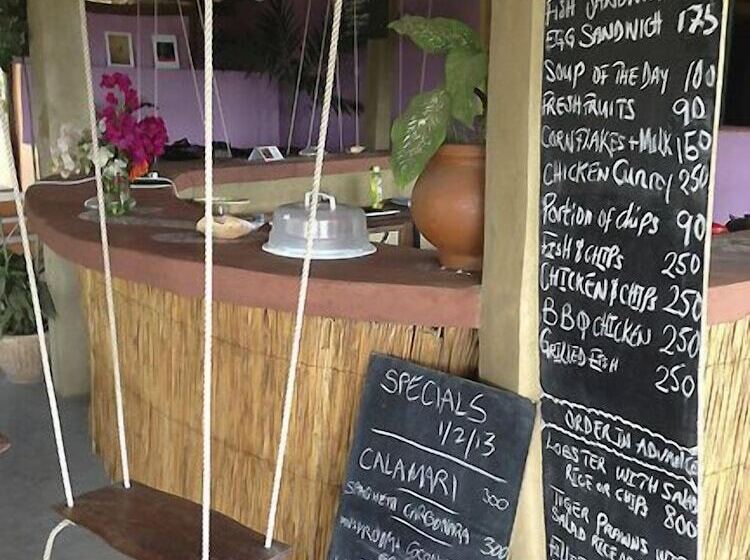 FISH SANDWICH
EGG SANDWICH 175
SOUP OF THE DAY 100
FRESH FRUITS 90
CORNFLAKES + MILK 150
CHICKEN CURRY 250
PORTION OF CHIPS 90
FISH & CHIPS 250
CHICKEN & CHIPS 250
BBQ CHICKEN 250
GRILLED FISH 250
ORDER IN ADVANCE
LOBSTER WITH SALAD
RICE OR CHIPS 800
TIGER PRAWNS
SALAD RICE
SPECIALS
1/2/13
CALAMARI 300
SPAGHETTI CARBONARA 300